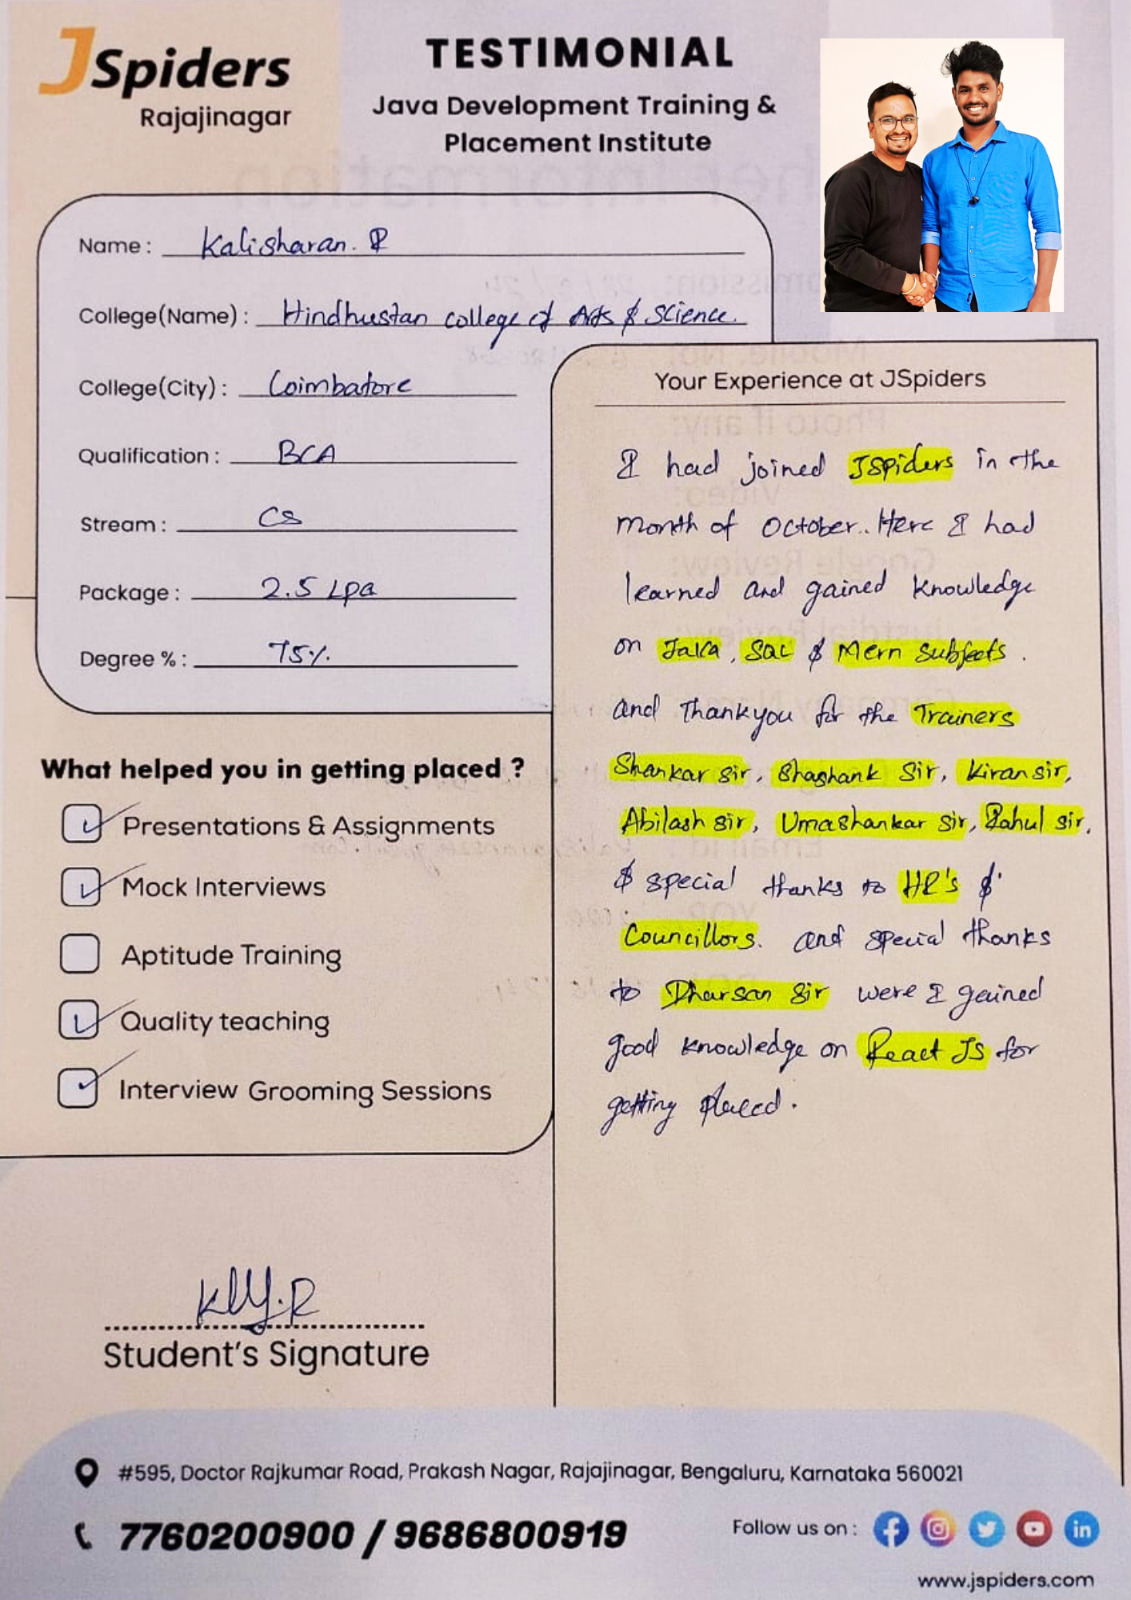 JSpiders
Rajajinagar
TESTIMONIAL
Java Development Training &
Placement Institute
Name : Kalisharan. R
College(Name) : Hindhustan college of Arts & Science.
College(City) : Coimbatore
Qualification : BCA
Stream : CS
Package : 2.5 Lpa
Degree % : 75%.
What helped you in getting placed ?
Presentations & Assignments
Mock Interviews
Aptitude Training
Quality teaching
Interview Grooming Sessions
Your Experience at JSpiders
I had joined JSpiders in the
month of October.. Here I had
learned and gained knowledge
on Java, SQL & Mern Subjects.
and Thankyou for the Trainers
Shankar sir, Shashank Sir, Kiran sir,
Abilash sir, Umashankar sir, Rahul sir,
& special thanks to HR's &
Councillors. and special thanks
to Dharsan Sir were I gained
good knowledge on React JS for
getting placed.
Student's Signature
#595, Doctor Rajkumar Road, Prakash Nagar, Rajajinagar, Bengaluru, Karnataka 560021
7760200900 / 9686800919
Follow us on :
www.jspiders.com